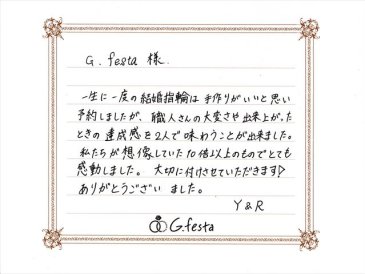 G. festa 様.
一生に一度の結婚指輪は手作りがいいと思い
予約しましたが、職人さんの大変さや出来上がった
ときの達成感を2人で味わうことが出来ました。
私たちが想像していた10倍以上のものでとても
感動しました。大切に付けさせていただきます♡
ありがとうございました。
Y & R
G.festa